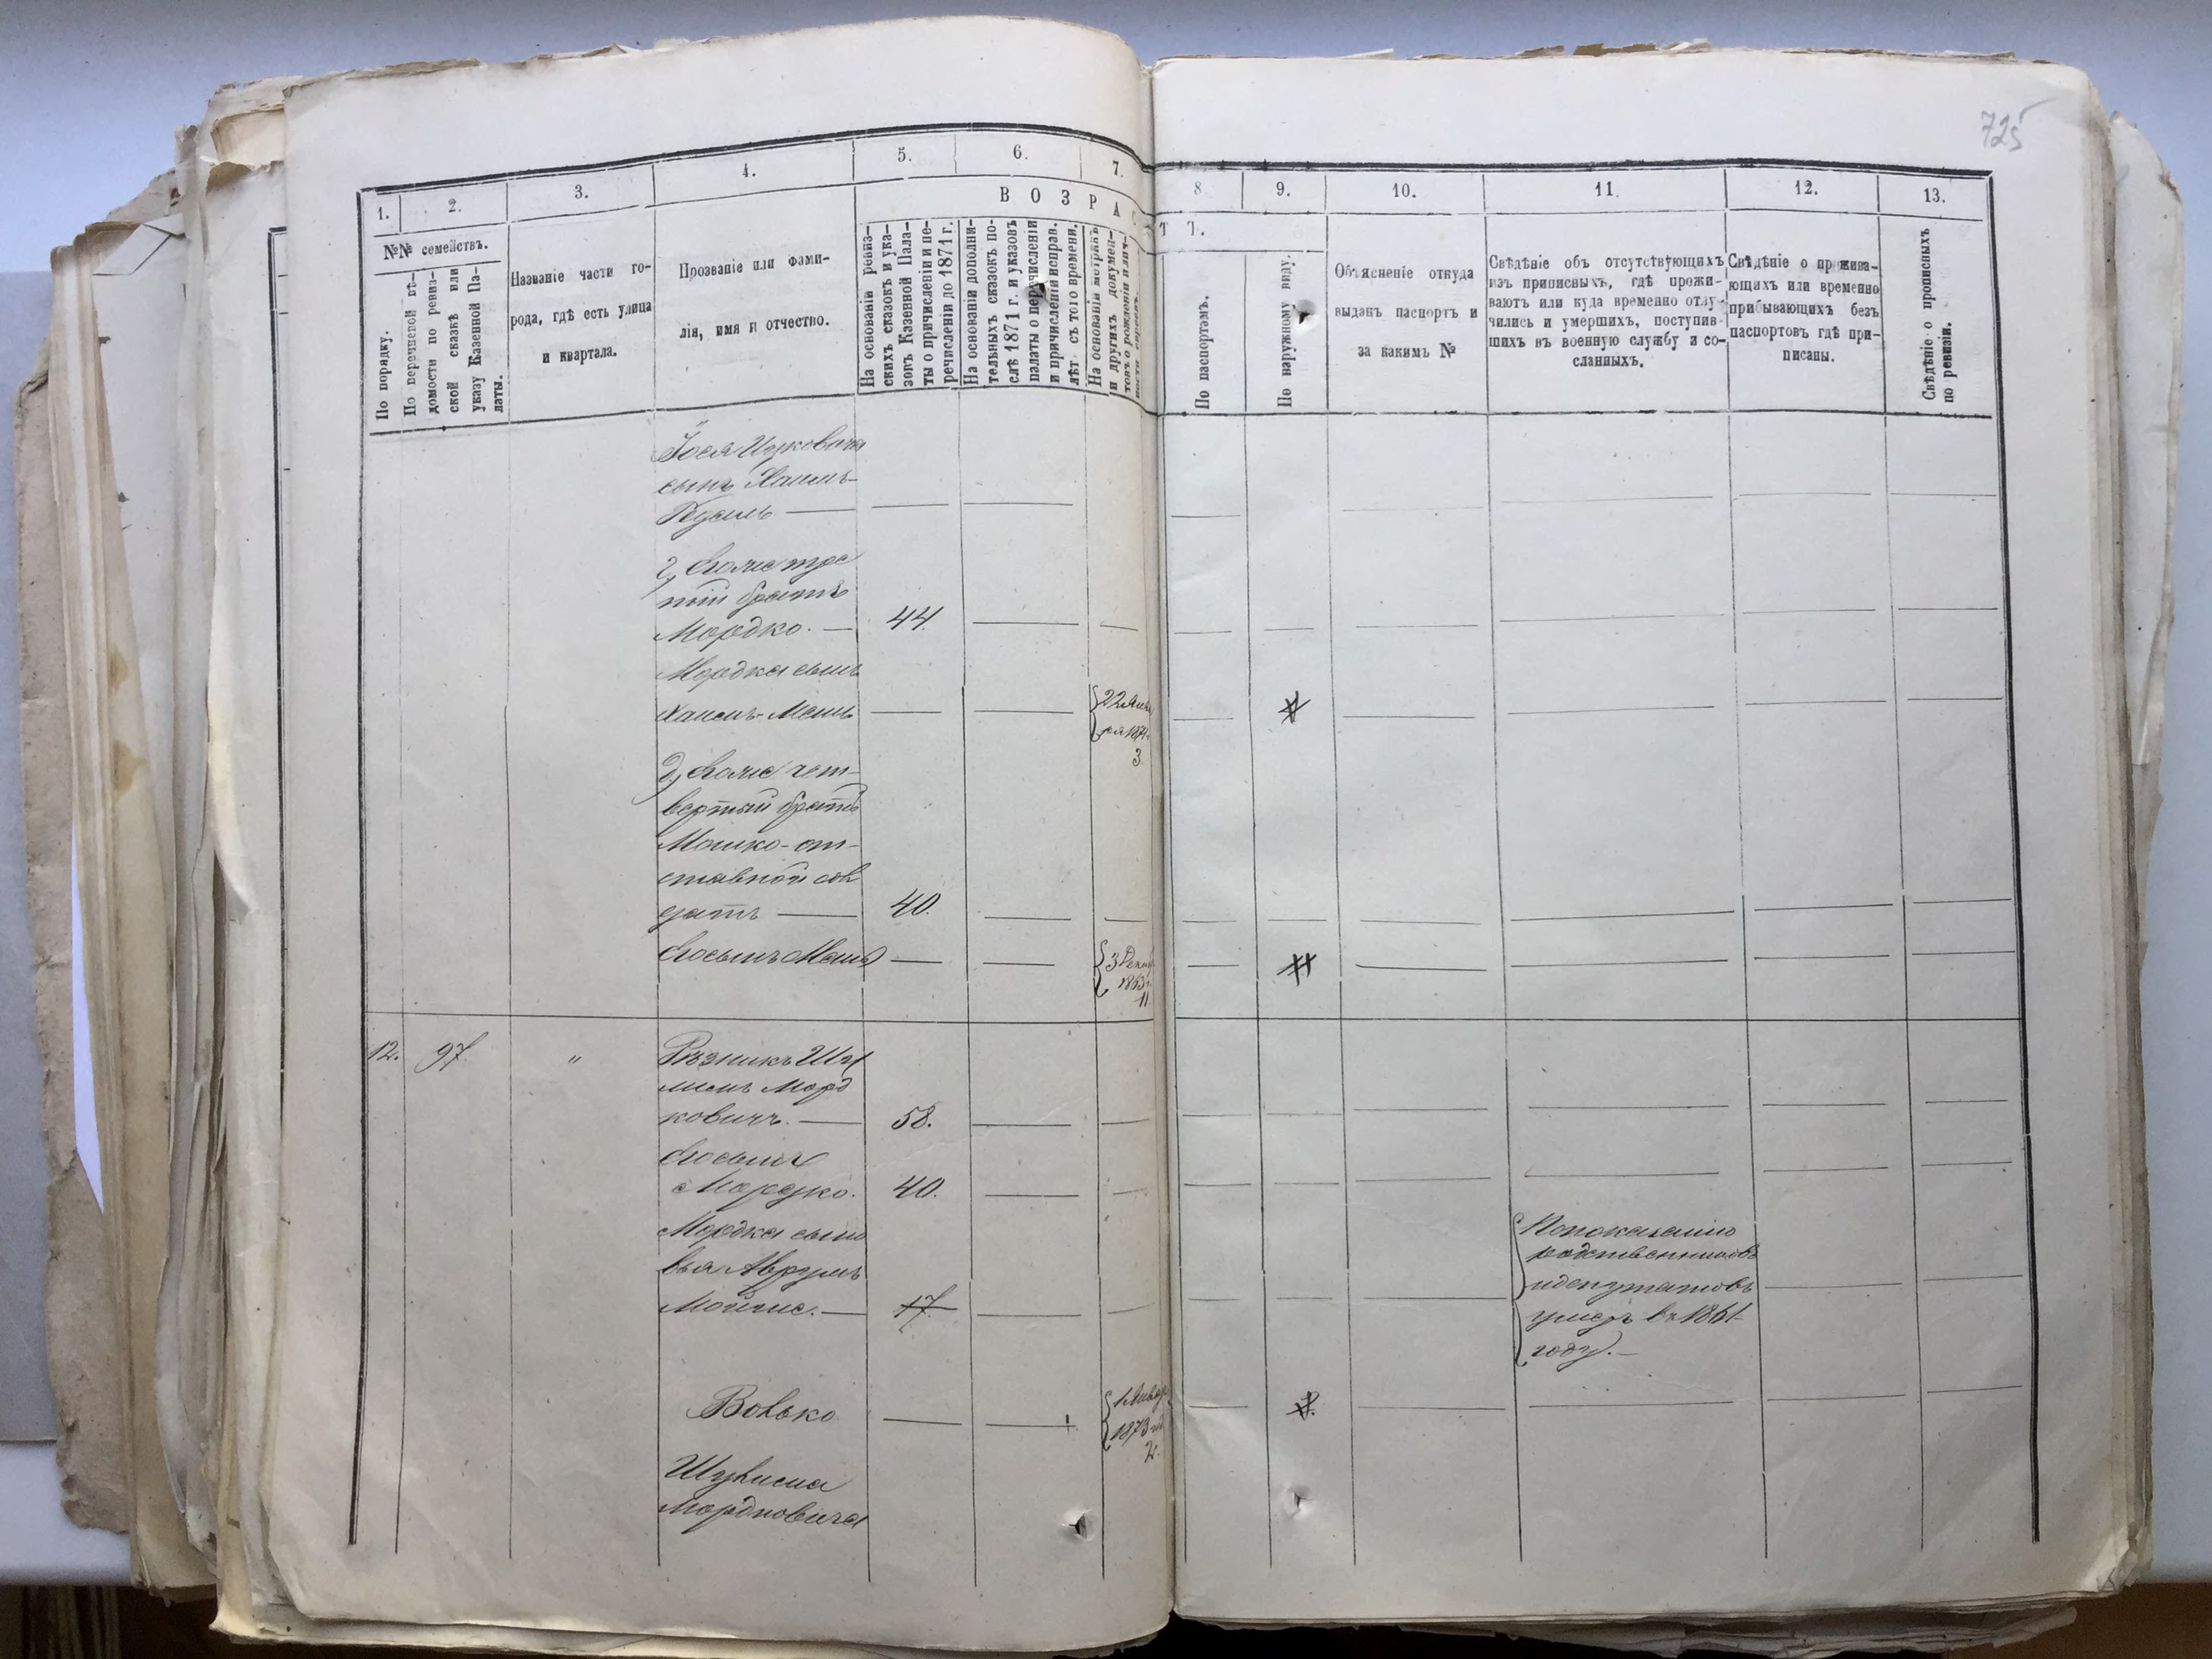 725
1.
2.
3.
4.
5.
6.
7.
8
9.
10.
11.
12.
13.
ВОЗРА
СТ Т.
№№ семействъ.
По порядку.
По перечневой вѣ-
домости по ревиз-
ской сказкѣ или
указу Казенной Па-
латы.
Названіе части го-
рода, гдѣ есть улица
и квартала.
Прозваніе или фами-
лія, имя и отчество.
На основаніи ревиз-
скихъ сказокъ и ука-
зовъ Казенной Пала-
ты о причисленіи и пе-
речисленіи до 1871 г.
На основаніи дополни-
тельныхъ сказокъ по-
слѣ 1871 г. и указовъ
палаты о перечисленіи
и причисленіи исправ.
лѣт съ того времени.
На основаніи метрикъ
и другихъ докумен-
товъ о рожденіи и лич-
По паспортамъ.
По наружному виду.
Объясненіе откуда
выданъ паспортъ и
за какимъ №
Свѣдѣніе объ отсутствующихъ
изъ приписныхъ, гдѣ прожи-
ваютъ или куда временно отлу-
чились и умершихъ, поступив-
шихъ въ военную службу и со-
сланныхъ.
Свѣдѣніе о прожива-
ющихъ или временно
прибывающихъ безъ
паспортовъ гдѣ при-
писаны.
Свѣдѣніе о прописныхъ
по ревизіи.
Іося Ицковича
сынъ Хаимъ-
2, Его же тре
тій братъ
Мордко. — 44
Мордка сынъ
22 Янва
ря 1871
3.
Его же чет-
вертый братъ
Мошко-от-
ставной сол
датъ — 40.
Его сынъ
3 Дек
1863
11.
12. 97. "
Рѣзникъ Шу
лимъ Морд
ковичъ. — 58.
Его сынъ
Мордко. 40.
Мордка сыно
вья Аврумъ
17.
По показанію
родственниковъ
и депутатовъ
умеръ въ 1861
году. —
Волько
1 Январ
1873
2.
Шулима
Мордковича